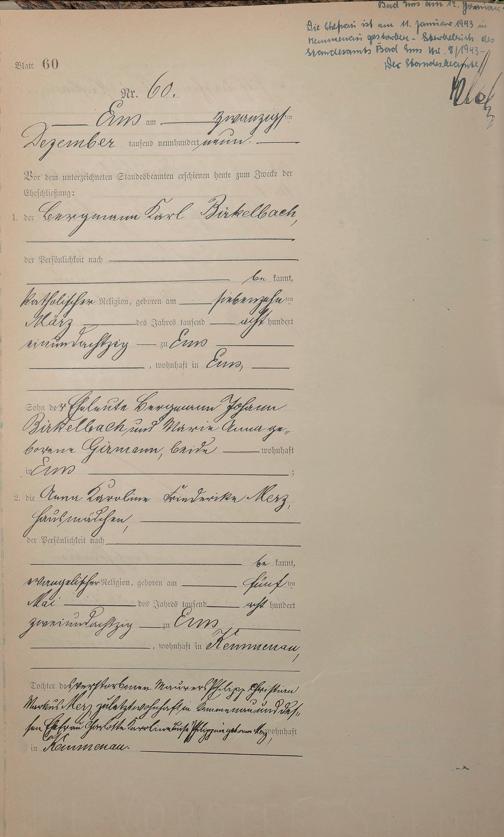 Bad Ems am 12. Januar
Die Ehefrau ist am 11. Januar 1943 in
Kemmenau gestorben - Sterbebuch des
Standesamts Bad Ems Nr. 8/1943-
Der Standesbeamte
Blatt 60
Nr. 60.
Ems am zwanzigsten
Dezember tausend neunhundert neun.
Vor dem unterzeichneten Standesbeamten erschienen heute zum Zwecke der
Eheschließung:
1. der Bergmann Karl Birkelbach,
der Persönlichkeit nach
be kannt,
katholischer Religion, geboren am siebenzehnten
März des Jahres tausend acht hundert
einundachtzig zu Ems
, wohnhaft in Ems,
Sohn der Eheleute Bergmann Johann
Birkelbach, und Maria Anna ge-
borene Girmann, beide wohnhaft
in Ems ;
2. die Anna Karoline Friederike Merz,
Hausmädchen,
der Persönlichkeit nach
be kannt,
evangelischer Religion, geboren am fünften
Mai des Jahres tausend acht hundert
zweiundachtzig zu Ems
, wohnhaft in Kemmenau,
Tochter des verstorbenen Maurers Philipp Christian
Markus Merz zuletzt wohnhaft in Kemmenau und des-
sen Ehefrau Karoline geborene wohnhaft
in Kemmenau.